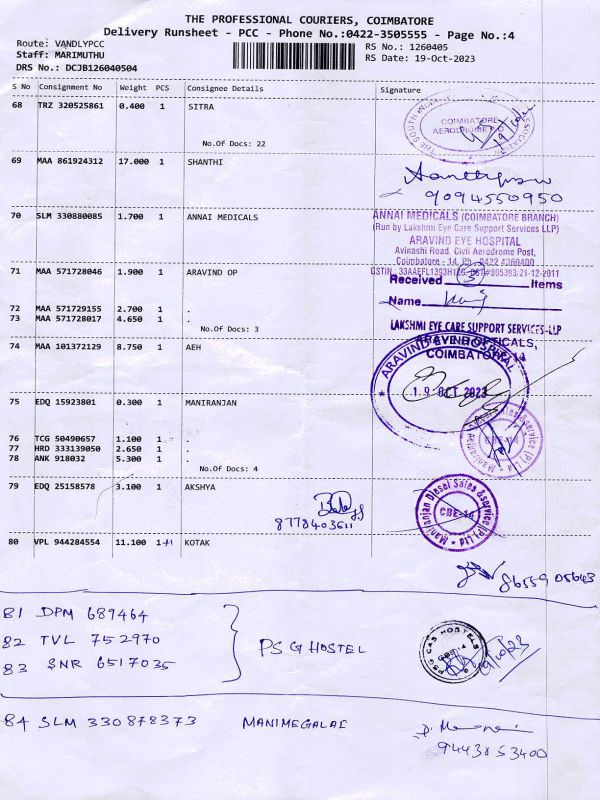 THE PROFESSIONAL COURIERS, COIMBATORE
Delivery Runsheet - PCC - Phone No.:0422-3505555 - Page No.:4
Route: VANDLYPCC
Staff: MARIMUTHU
DRS No.: DCJB126040504
RS No.: 1260405
RS Date: 19-Oct-2023
S No Consignment No Weight PCS Consignee Details Signature
68 TRZ 320525861 0.400 1 SITRA
No.Of Docs: 22
COIMBATORE
AERODROME P.O
69 MAA 861924312 17.000 1 SHANTHI
9094550950
70 SLM 330880085 1.700 1 ANNAI MEDICALS
ANNAI MEDICALS (COIMBATORE BRANCH)
(Run by Lakshmi Eye Care Support Services LLP)
ARAVIND EYE HOSPITAL
Avinashi Road, Civil Aerodrome Post,
Coimbatore - 14, Ph: 0422 4360400
71 MAA 571728046 1.900 1 ARAVIND OP
Received 3 Items
Name
72 MAA 571729155 2.700 1 .
73 MAA 571728017 4.650 1 .
No.Of Docs: 3
LAKSHMI EYE CARE SUPPORT SERVICES-LLP
ARAVIND OPTICALS,
COIMBATORE-14
74 MAA 101372129 8.750 1 AEH
ARAVIND EYE HOSPITAL
19 OCT 2023
75 EDQ 15923801 0.300 1 MANIRANJAN
76 TCG 50490657 1.100 1 .
77 HRD 333139050 2.650 1 .
78 ANK 918032 5.300 1 .
No.Of Docs: 4
Maniranjan Diesel Sales & service (P) Ltd
CBE-14
79 EDQ 25158578 3.100 1 AKSHYA
8778403611
Maniranjan Diesel Sales & service (P) Ltd
CBE-14
80 VPL 944284554 11.100 1+1 KOTAK
8655905643
81 DPM 689464
82 TVL 752970
83 SNR 6517035
PSG HOSTEL
PSG CAS HOSTELS
84 SLM 330878373 MANIMEGALAI
9443853400